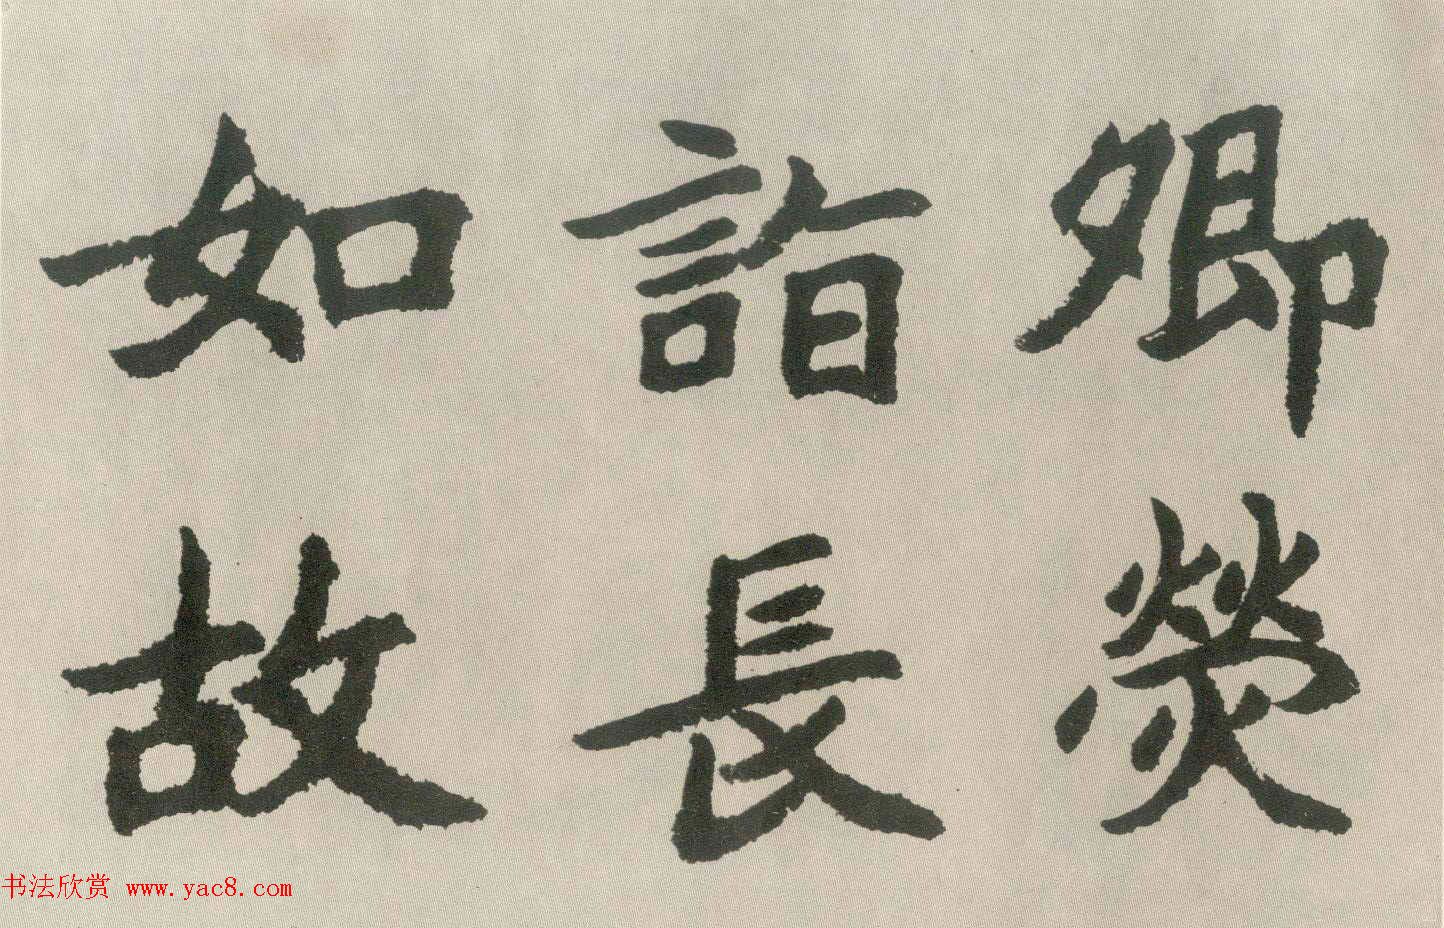 卿熒
詣長
如故
书法欣赏 www.yac8.com